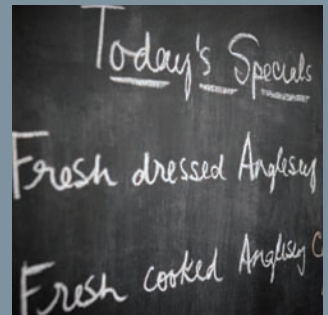 Today's Specials
Fresh dressed Anglesey
Fresh cooked Anglesey C